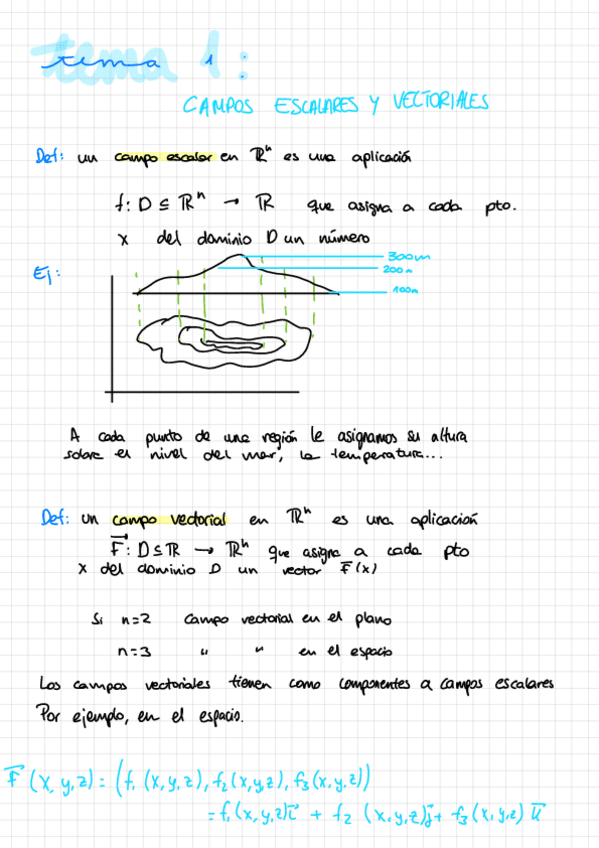 tema 1:
CAMPOS ESCALARES Y VECTORIALES
Def: un campo escalar en ℝⁿ es una aplicación
f: D ⊆ ℝⁿ → ℝ que asigna a cada pto.
x del dominio D un número
Ej:
300m
200m
100m
A cada punto de una región le asignamos su altura
sobre el nivel del mar, la temperatura...
Def: un campo vectorial en ℝⁿ es una aplicación
F⃗: D ⊆ ℝ → ℝⁿ que asigna a cada pto
x del dominio D un vector F̄(x)
Si n=2 campo vectorial en el plano
n=3 " " en el espacio
Los campos vectoriales tienen como componentes a campos escalares
Por ejemplo, en el espacio.
F⃗(x, y, z) = (f₁(x, y, z), f₂(x, y, z), f₃(x, y, z))
= f₁(x, y, z)i⃗ + f₂(x, y, z)j⃗ + f₃(x, y, z)k⃗